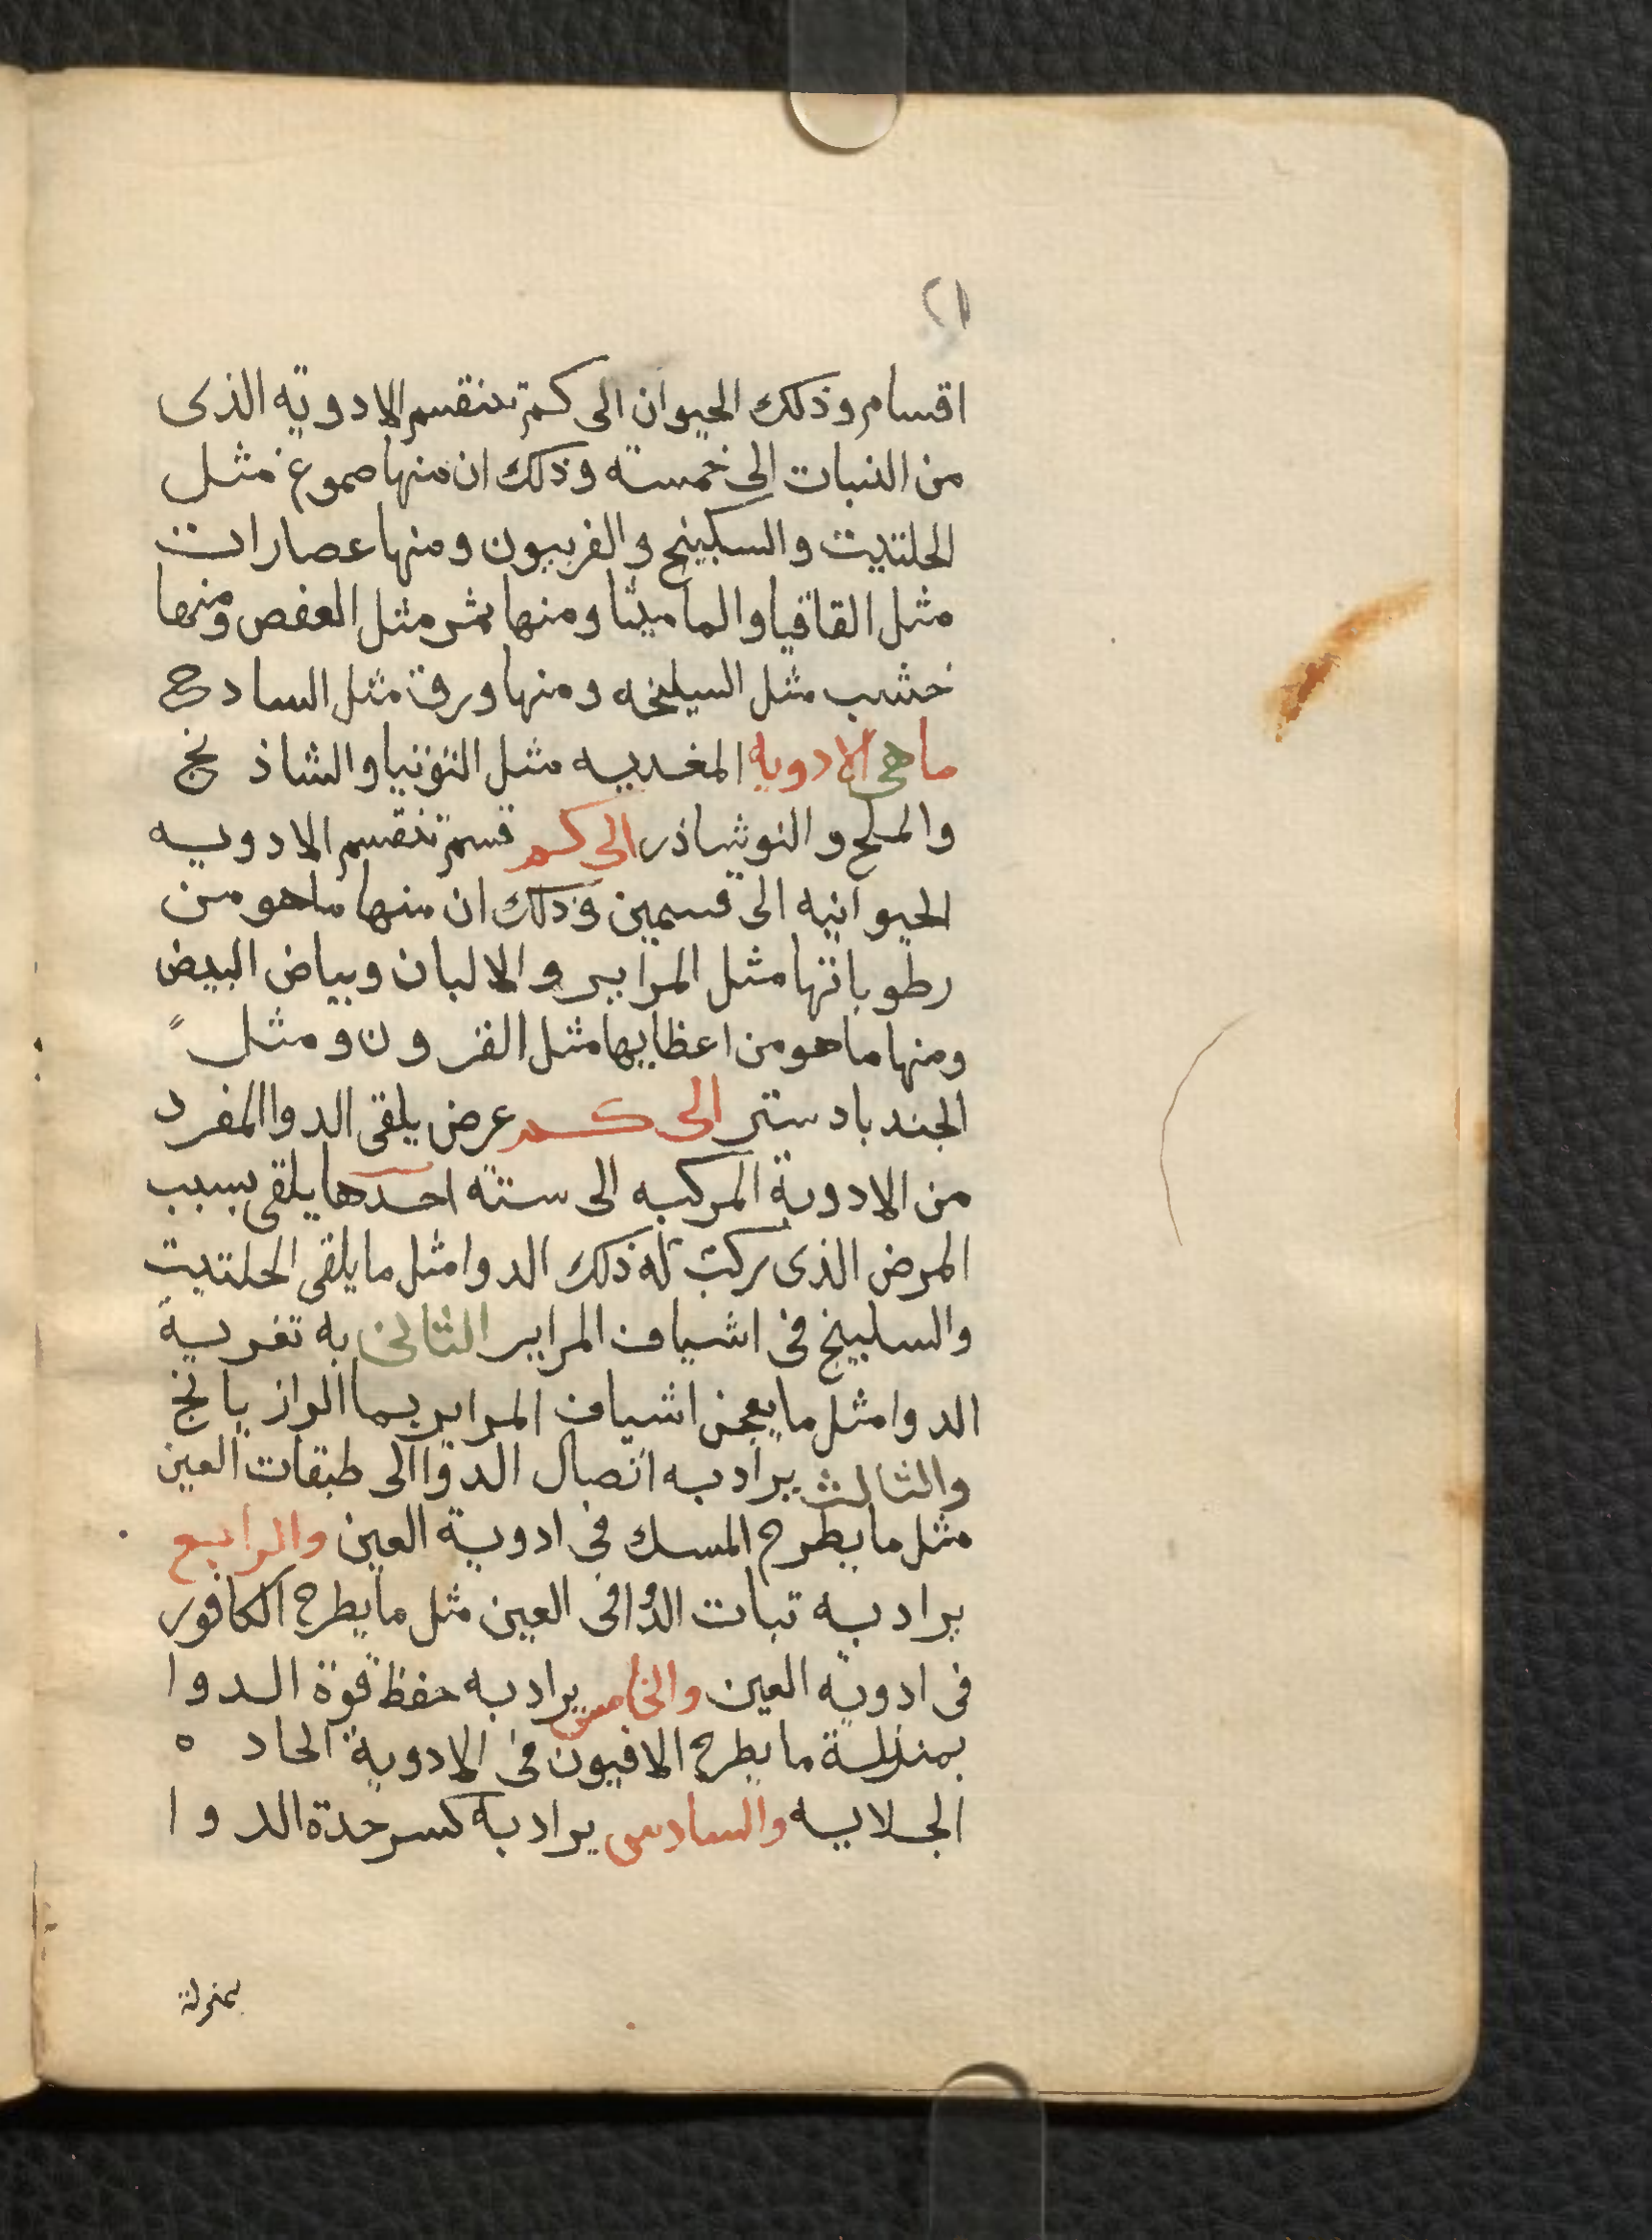 ٢١
اقسام وذلك الحيوان الى كم تنقسم الادوية الذى
من النبات الى خمسته وذلك ان منها صموغ مثل
الحلتيت والسكبينج والفربيون ومنها عصارات
مثل القاقيا والماميثا ومنها ثمر مثل العفص ومنها
خشب مثل السيلخه ومنها ورق مثل السادج
ماهى الادويه المعدنيه مثل التوتيا والشاذنج
والملح والنوشاذر الى كم قسم تنقسم الادويه
الحيوانيه الى قسمين وذلك ان منها ماهو من
رطوباتها مثل المراير والالبان وبياض البيض
ومنها ماهو من اعظايها مثل القرون ومثل
الجندبادستر الى كم عرض يلقى الدوا المفرد
من الادوية المركبه الى ستته احدها يلقى بسبب
المرض الذى ركبت له ذلك الدوا مثل ما يلقى الحلتيت
والسلبينج فى اشياف المراير الثانى به تغرية
الدوا مثل ما يعجن اشياف المراير بما الرازيانج
والثالث يراد به اتصال الدوا الى طبقات العين
مثل ما يطرح المسك فى ادوية العين والرابع
يراد به تبات الدوا فى العين مثل ما يطرح الكافور
فى ادوية العين والخامس يراد به حفظ قوة الدوا
بمنزلة ما يطرح الافيون فى الادوية الحاده
الجلايه والسادس يراد به كسر حدة الدوا
بمنزلة